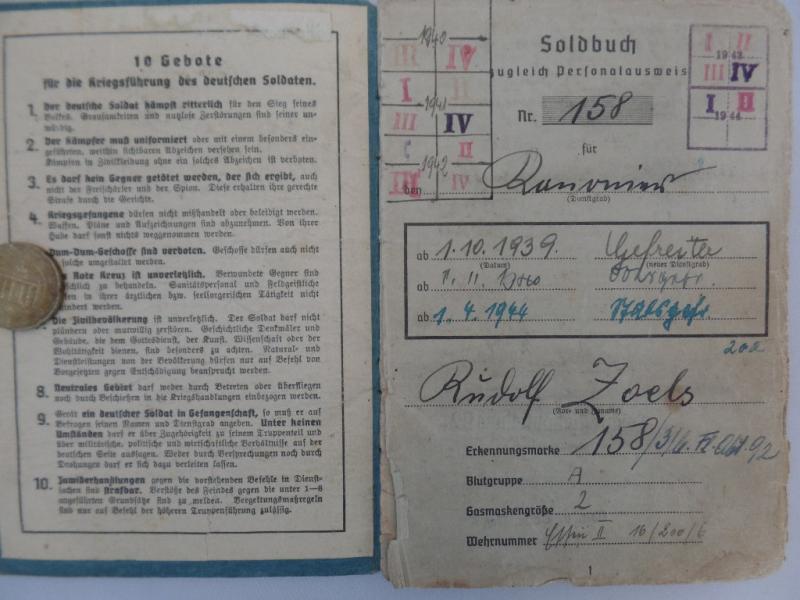 10 Gebote
für die Kriegsführung des deutschen Soldaten.
1. Der deutsche Soldat kämpft ritterlich für den Sieg seines
Volkes. Grausamkeiten und nutzlose Zerstörungen sind seiner un-
würdig.
2. Der Kämpfer muß uniformiert oder mit einem besonders ein-
geführten, weithin sichtbaren Abzeichen versehen sein.
Kämpfen in Zivilkleidung ohne ein solches Abzeichen ist verboten.
3. Es darf kein Gegner getötet werden, der sich ergibt, auch
nicht der Freischärler und der Spion. Diese erhalten ihre gerechte
Strafe durch die Gerichte.
4. Kriegsgefangene dürfen nicht mißhandelt oder beleidigt werden.
Waffen, Pläne und Aufzeichnungen sind abzunehmen. Von ihrer
Habe darf sonst nichts weggenommen werden.
Dum-Dum-Geschosse sind verboten. Geschosse dürfen auch nicht
solche umgestaltet werden.
Rote Kreuz ist unverletzlich. Verwundete Gegner sind
zu behandeln. Sanitätspersonal und Feldgeistliche
in ihrer ärztlichen bzw. seelsorgerischen Tätigkeit nicht
gehindert werden.
Die Zivilbevölkerung ist unverletzlich. Der Soldat darf nicht
plündern oder mutwillig zerstören. Geschichtliche Denkmäler und
Gebäude, die dem Gottesdienst, der Kunst, Wissenschaft oder der
Wohltätigkeit dienen, sind besonders zu achten. Natural- und
Dienstleistungen von der Bevölkerung dürfen nur auf Befehl von
Vorgesetzten gegen Entschädigung beansprucht werden.
8. Neutrales Gebiet darf weder durch Betreten oder Überfliegen
noch durch Beschießen in die Kriegshandlungen einbezogen werden.
9. Gerät ein deutscher Soldat in Gefangenschaft, so muß er auf
Befragen seinen Namen und Dienstgrad angeben. Unter keinen
Umständen darf er über Zugehörigkeit zu seinem Truppenteil und
über militärische, politische und wirtschaftliche Verhältnisse auf der
deutschen Seite aussagen. Weder durch Versprechungen noch durch
Drohungen darf er sich dazu verleiten lassen.
10. Zuwiderhandlungen gegen die vorstehenden Befehle in Dienst-
sachen sind strafbar. Verstöße des Feindes gegen die unter 1—8
angeführten Grundsätze sind zu melden. Vergeltungsmaßregeln
sind nur auf Befehl der höheren Truppenführung zulässig.
1940
III IV
I II
1941
III IV
II
1942
III IV
Soldbuch
zugleich Personalausweis
Nr. 158
für
den Kanonier
(Dienstgrad)
I II
1943
III IV
I II
1944
ab 1.10.1939. Gefreiter
(Datum) (neuer Dienstgrad)
ab 1. 11. 1940 Obergefr
ab 1. 4. 1944 Stabsgefr
200
Rudolf Zoels
(Vor- und Zuname)
Erkennungsmarke 158/3/
Blutgruppe A
Gasmaskengröße 2
Wehrnummer Essen II 16/200/6
1